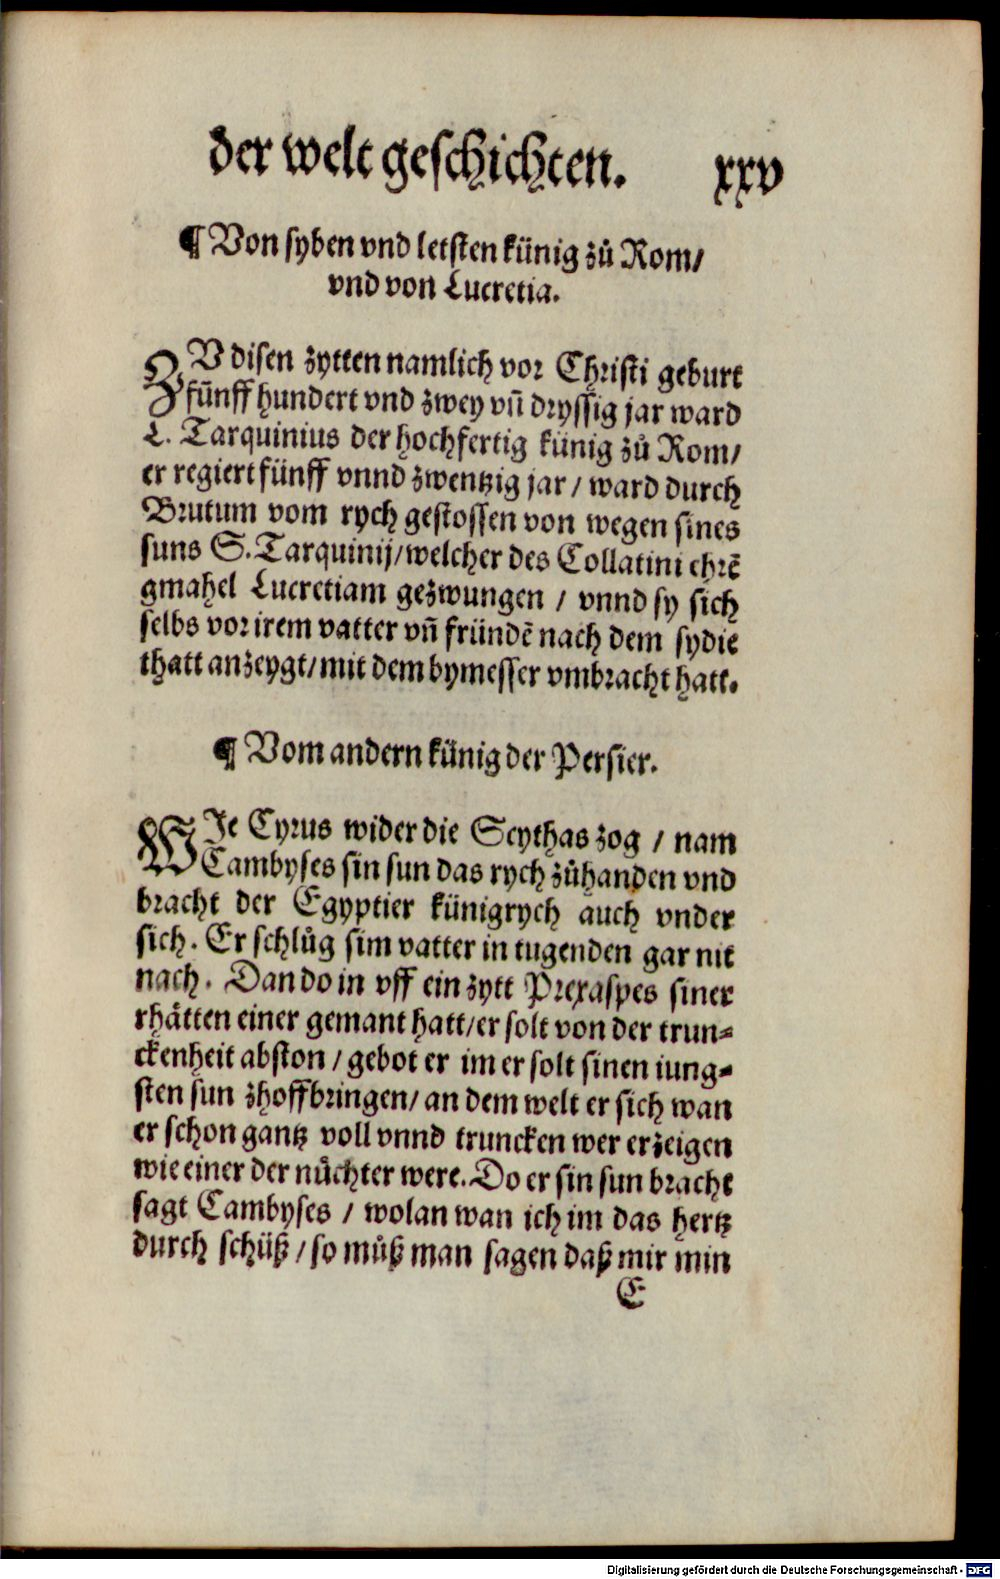 der welt geschichten. xxv
¶ Von syben vnd letsten künig zů Rom/
vnd von Lucretia.
ZV disen zytten namlich vor Christi geburt
fünff hundert vnd zwey vñ dryssig jar ward
L. Tarquinius der hochfertig künig zů Rom/
er regiert fünff vnnd zwentzig jar / ward durch
Brutum vom rych gestossen von wegen sines
suns S. Tarquinij/welcher des Collatini ehrẽ
gmahel Lucretiam gezwungen / vnnd sy sich
selbs vor irem vatter vñ fründẽ nach dem sy die
thatt anzeygt/mit dem bymesser vmbracht hatt.
¶ Vom andern künig der Persier.
WIe Cyrus wider die Scythas zog / nam
Cambyses sin sun das rych zůhanden vnd
bracht der Egyptier künigrych auch vnder
sich. Er schlůg sim vatter in tugenden gar nit
nach. Dan do in vff ein zytt Prexaspes siner
rhätten einer gemant hatt/er solt von der trun⸗
ckenheit abston / gebot er im er solt sinen iung⸗
sten sun zhoff bringen/ an dem welt er sich wan
er schon gantz voll vnnd truncken wer erzeigen
wie einer der nůchter were. Do er sin sun bracht
sagt Cambyses / wolan wan ich im das hertz
durch schüß / so můß man sagen daß mir min
E
Digitalisierung gefördert durch die Deutsche Forschungsgemeinschaft - DFG